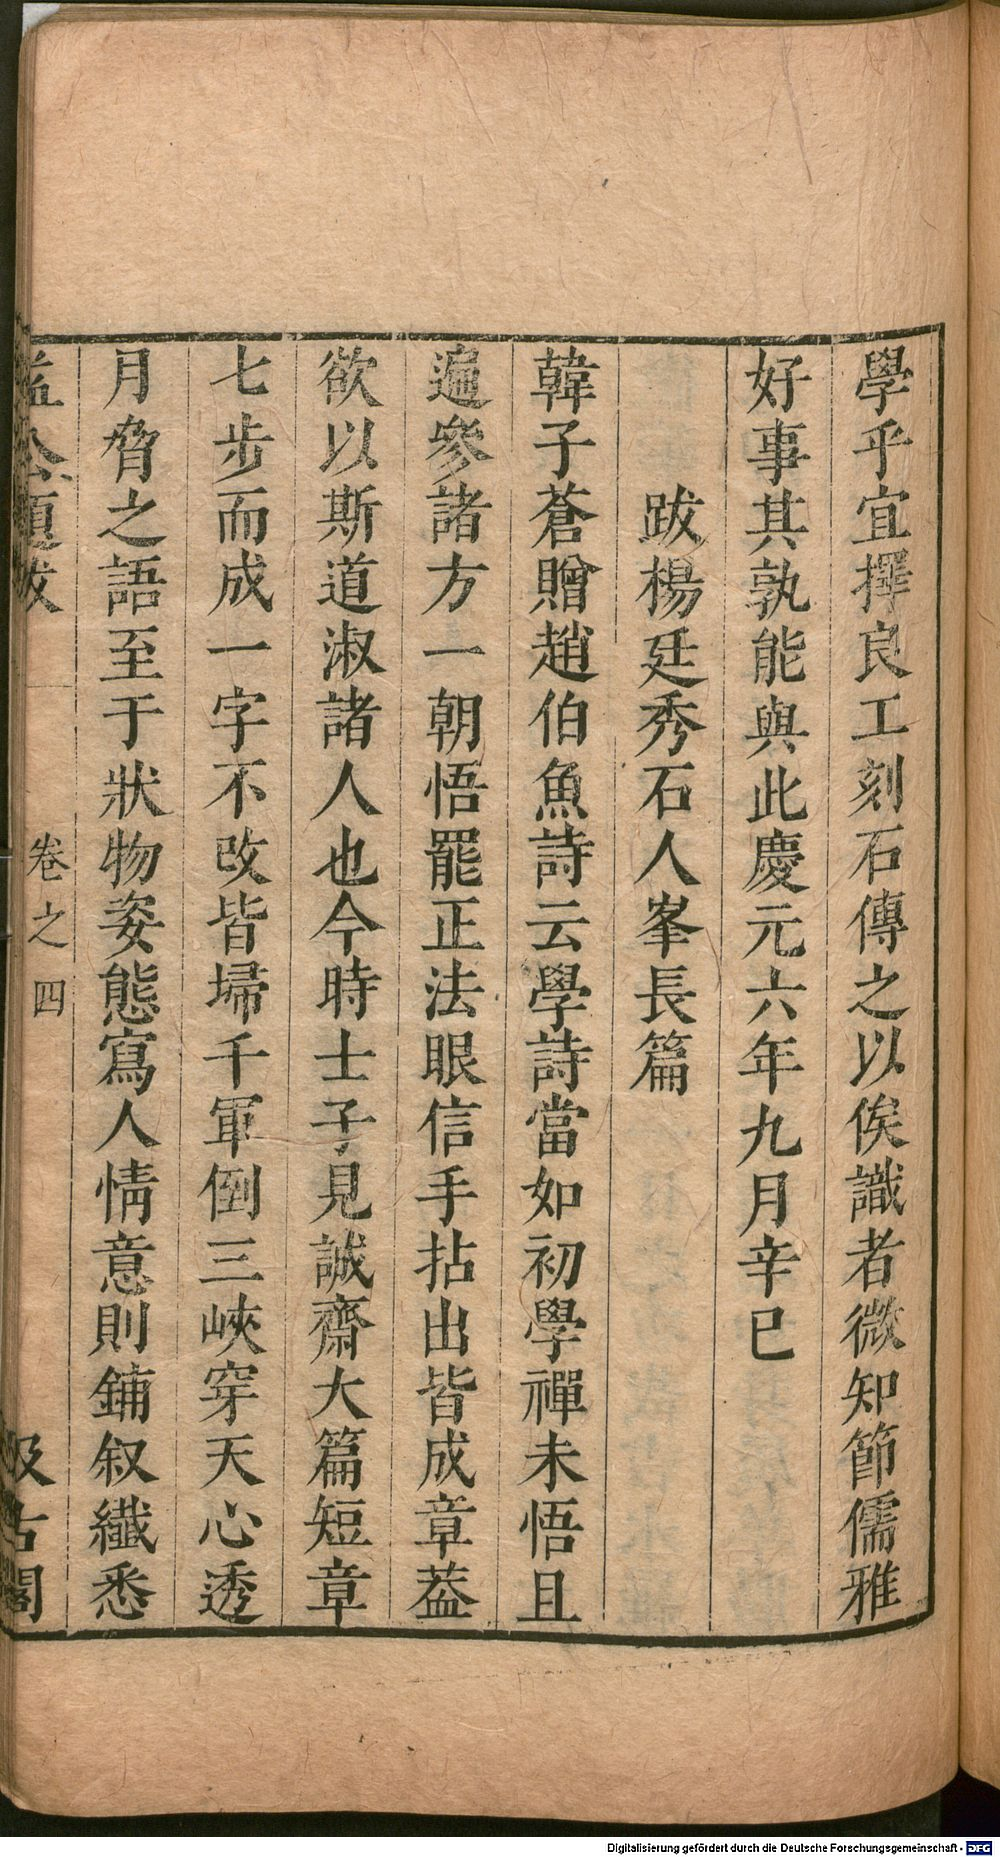 學乎宜擇良工刻石傳之以俟識者微知節儒雅
好事其孰能與此慶元六年九月辛巳
跋楊廷秀石人峯長篇
韓子蒼贈趙伯魚詩云學詩當如初學禪未悟且
遍參諸方一朝悟罷正法眼信手拈出皆成章葢
欲以斯道淑諸人也今時士子見誠齋大篇短章
七步而成一字不改皆埽千軍倒三峽穿天心透
月脅之語至于狀物姿態寫人情意則鋪叙纎悉
益公題跋 卷之四 汲古閣
Digitalisierung gefördert durch die Deutsche Forschungsgemeinschaft - DFG